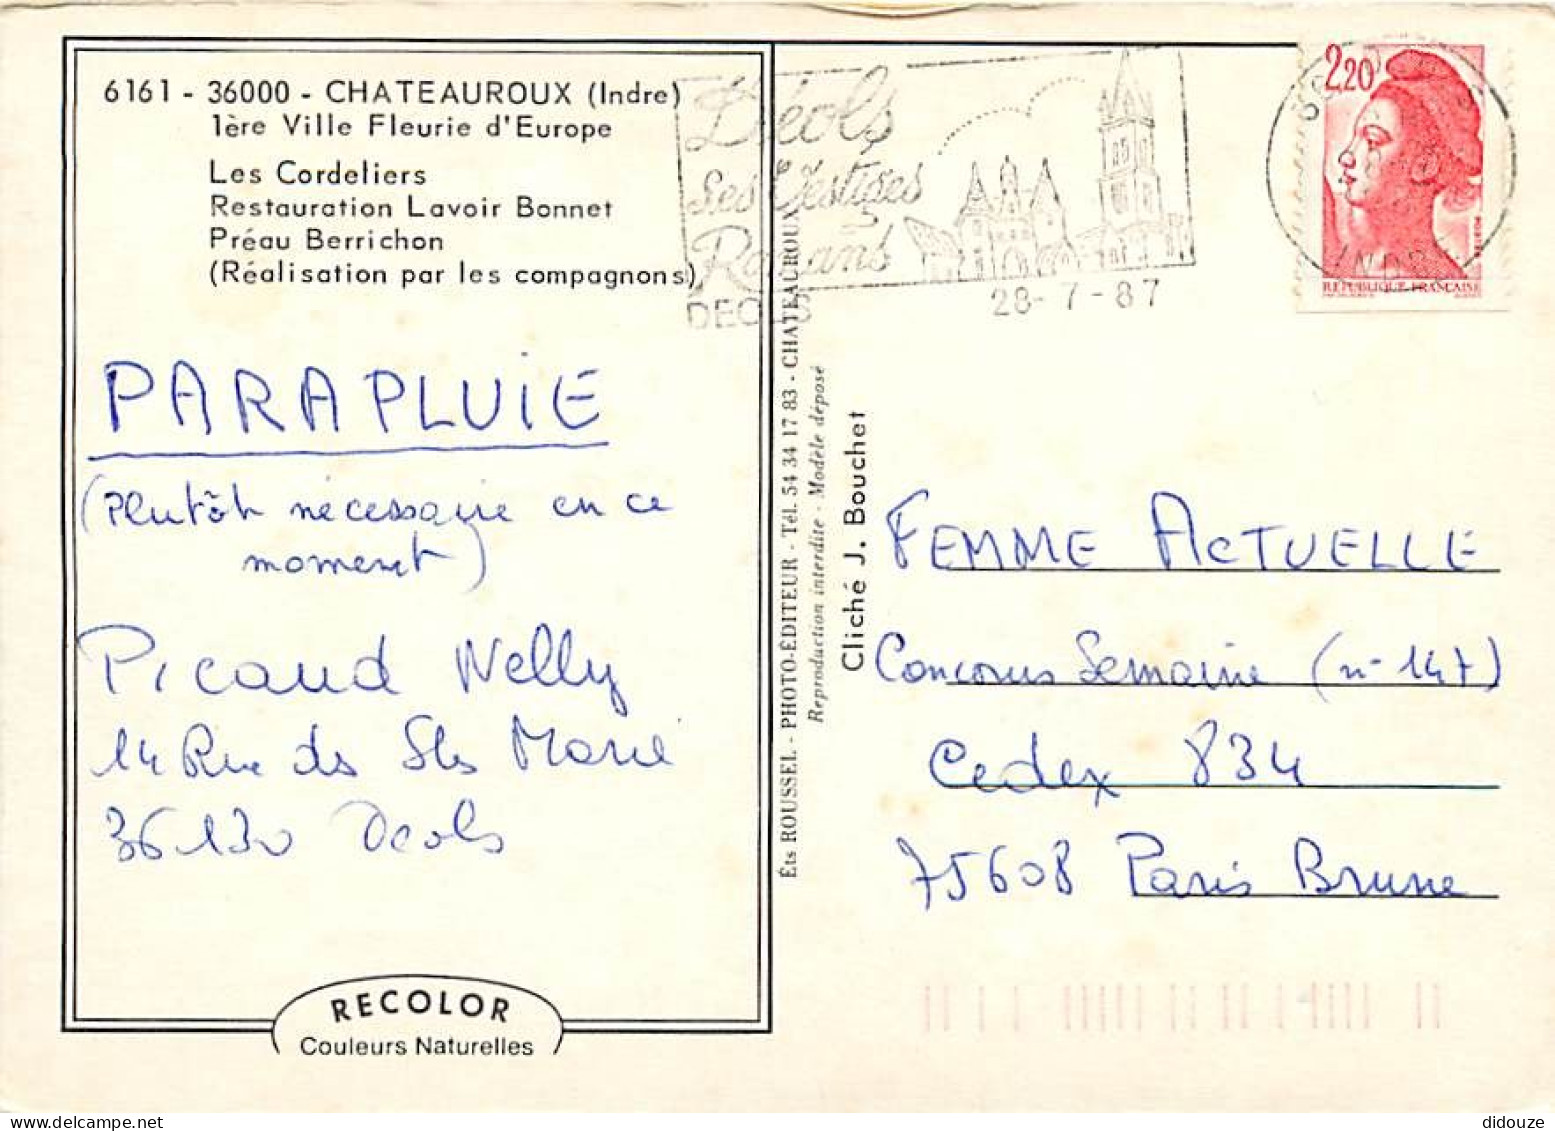 6161 - 36000 - CHATEAUROUX (Indre)
1ère Ville Fleurie d'Europe
Les Cordeliers
Restauration Lavoir Bonnet
Préau Berrichon
(Réalisation par les compagnons)
PARAPLUIE
(Plutôt nécessaire en ce
moment)
Picaud Nelly
14 Rue des Stes Marie
36130 Deols
RECOLOR
Couleurs Naturelles
Éts ROUSSEL - PHOTO-ÉDITEUR - Tél. 54 34 17 83 - CHATEAUROUX
Reproduction interdite - Modèle déposé
Cliché J. Bouchet
Déols
Ses Vestiges
Romans
DEOLS
28-7-87
2,20
INDRE
RÉPUBLIQUE FRANÇAISE
FEMME ACTUELLE
Concours Semaine (n° 147)
Cedex 834
75608 Paris Brune
didouze